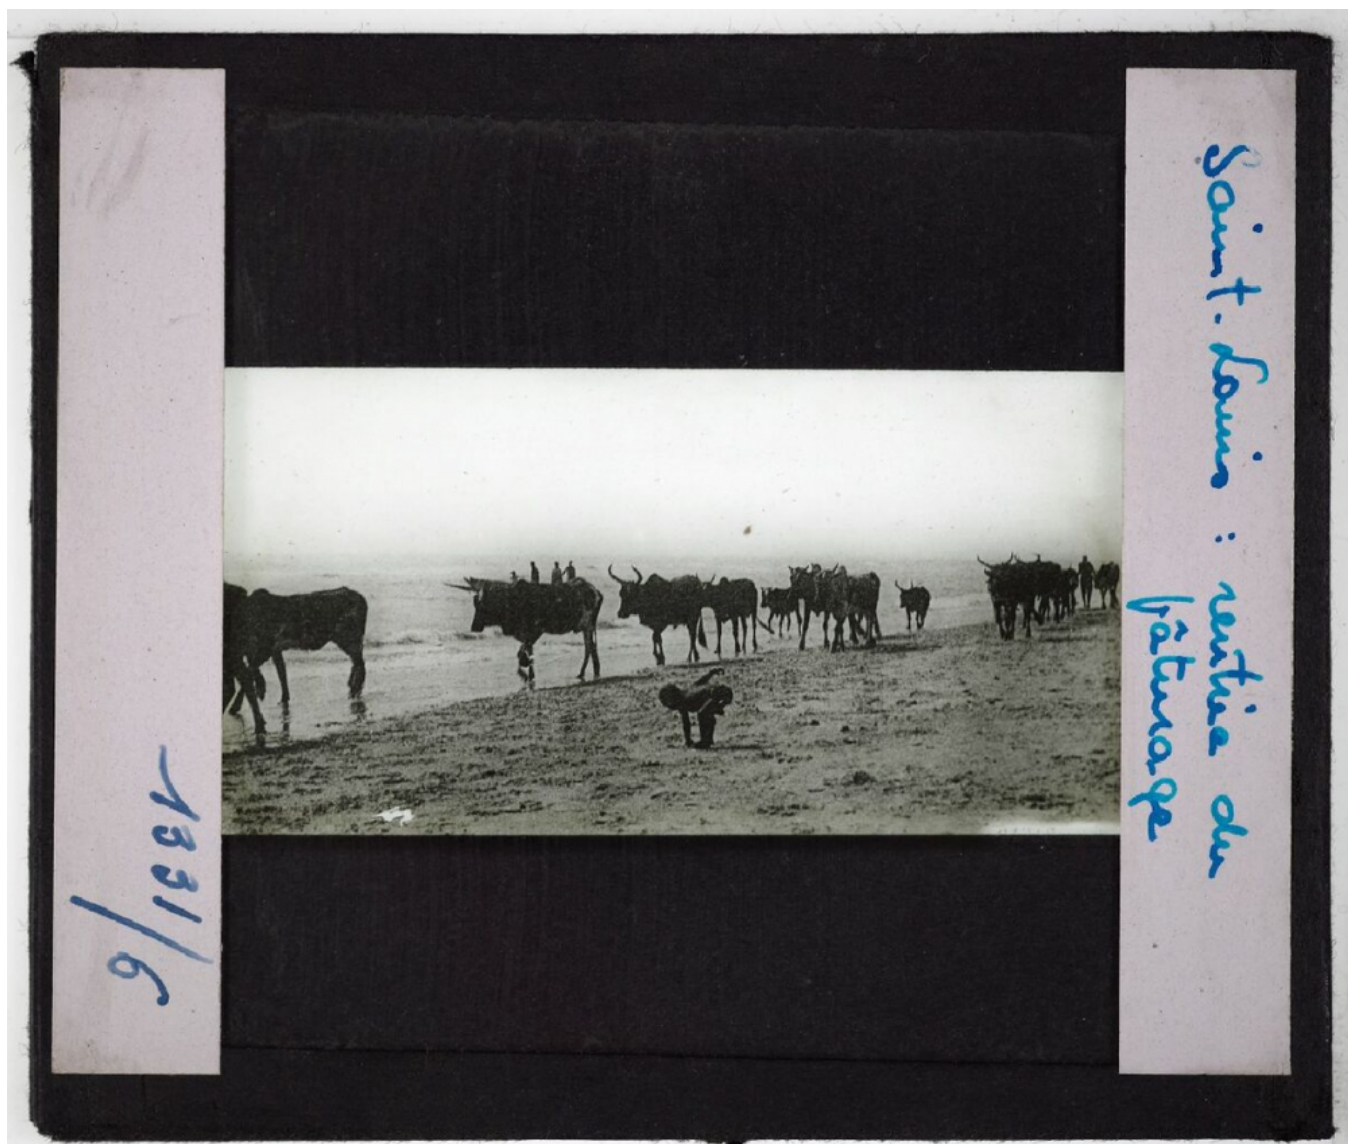 Saint-Louis : rentrée du
pâturage
1331/6